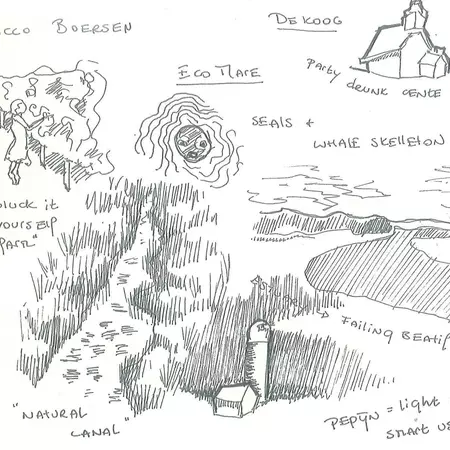 CCO BOERSEN
DE KOOG
ECO MARE
PARTY DRUNK CENTE
SEALS +
WHALE SKELLETON
PLUCK it
YOURSELP
PARK"
FAILING BEATIF
"NATURAL
CANAL"
PEPIJN = light
START UE